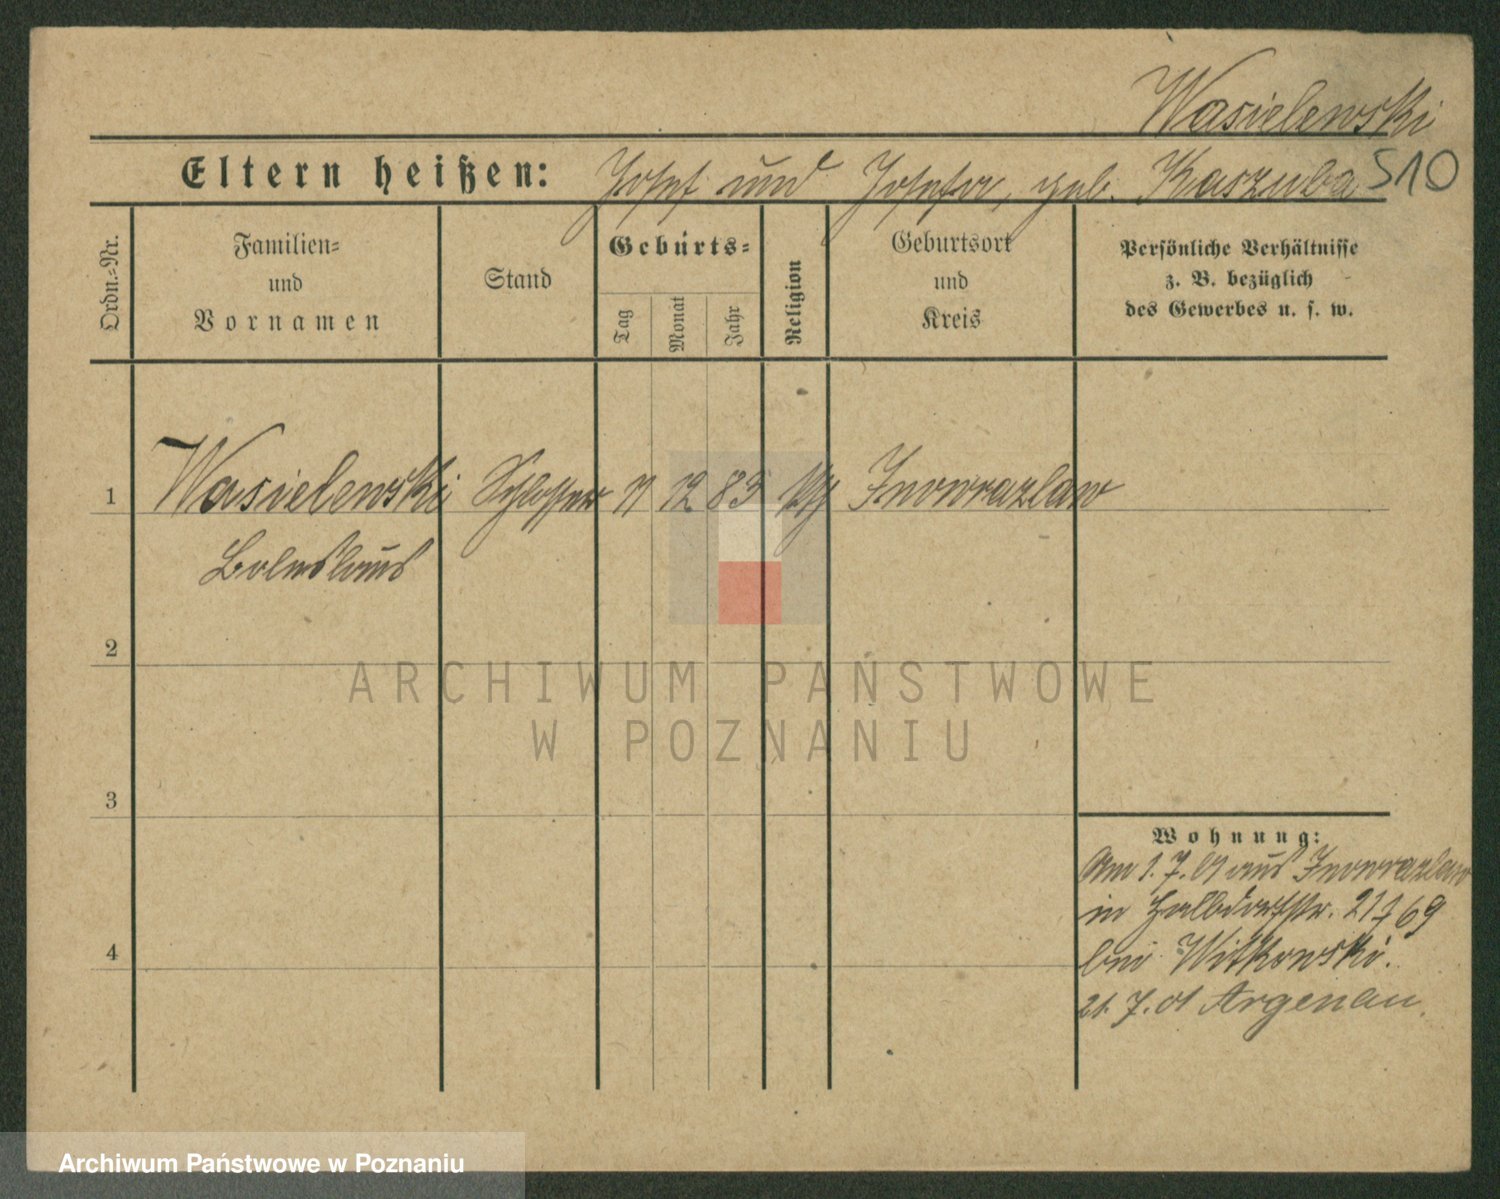 Wasielewski
Eltern heißen: Josef und Josefa, geb. Kaszuba 510
Ordn.=Nr.
Familien=
und
Vornamen
Stand
Geburts=
Tag
Monat
Jahr
Religion
Geburtsort
und
Kreis
Persönliche Verhältnisse
z. B. bezüglich
des Gewerbes u. s. w.
1 Wasielewski Schlosser 12 83 Inowrazlaw
Boleslaus
2
3
4
Wohnung:
Am 1.7.01 aus Inowrazlaw
in Halbdorfstr.
bei Witkowski.
21.7.01 Argenau.
ARCHIWUM PAŃSTWOWE
W POZNANIU
Archiwum Państwowe w Poznaniu